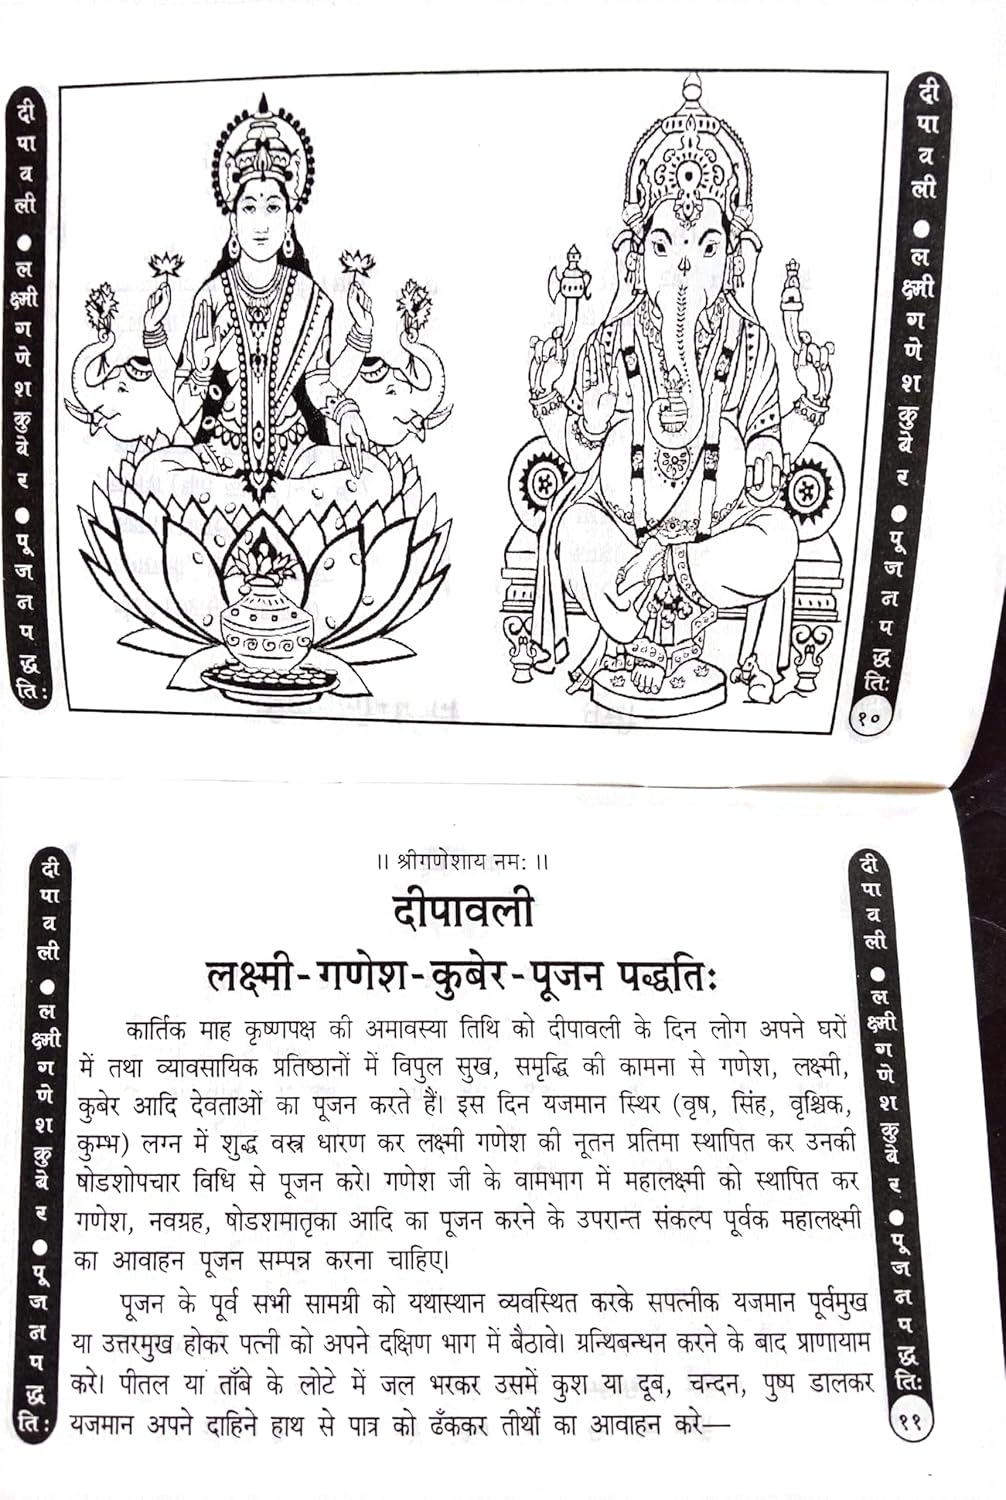 दीपावली ● लक्ष्मी गणेश कुबेर ● पूजन पद्धतिः
दीपावली ● लक्ष्मी गणेश कुबेर ● पूजन पद्धतिः
१०
दीपावली ● लक्ष्मी गणेश कुबेर ● पूजन पद्धतिः
।। श्रीगणेशाय नमः ।।
दीपावली
लक्ष्मी-गणेश-कुबेर-पूजन पद्धतिः
कार्तिक माह कृष्णपक्ष की अमावस्या तिथि को दीपावली के दिन लोग अपने घरों
में तथा व्यावसायिक प्रतिष्ठानों में विपुल सुख, समृद्धि की कामना से गणेश, लक्ष्मी,
कुबेर आदि देवताओं का पूजन करते हैं। इस दिन यजमान स्थिर (वृष, सिंह, वृश्चिक,
कुम्भ) लग्न में शुद्ध वस्त्र धारण कर लक्ष्मी गणेश की नूतन प्रतिमा स्थापित कर उनकी
षोडशोपचार विधि से पूजन करे। गणेश जी के वामभाग में महालक्ष्मी को स्थापित कर
गणेश, नवग्रह, षोडशमातृका आदि का पूजन करने के उपरान्त संकल्प पूर्वक महालक्ष्मी
का आवाहन पूजन सम्पन्न करना चाहिए।
पूजन के पूर्व सभी सामग्री को यथास्थान व्यवस्थित करके सपत्नीक यजमान पूर्वमुख
या उत्तरमुख होकर पत्नी को अपने दक्षिण भाग में बैठावे। ग्रन्थिबन्धन करने के बाद प्राणायाम
करे। पीतल या ताँबे के लोटे में जल भरकर उसमें कुश या दूब, चन्दन, पुष्प डालकर
यजमान अपने दाहिने हाथ से पात्र को ढँककर तीर्थों का आवाहन करे—
दीपावली ● लक्ष्मी गणेश कुबेर ● पूजन पद्धतिः
११